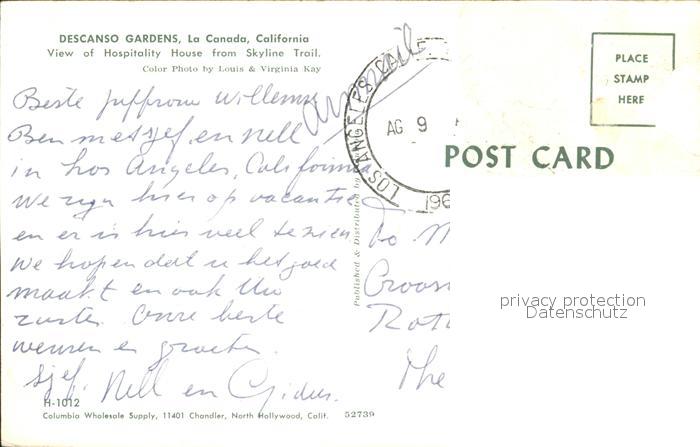 DESCANSO GARDENS, La Canada, California
View of Hospitality House from Skyline Trail.
Color Photo by Louis & Virginia Kay
Beste juffrouw Willemse
Ben met Sjef en Nell
in Los Angeles, California
We zijn hier op vacantie
en er is hier veel te zien.
We hopen dat u het goed
maakt en ook Uw
zuster. Onze beste
wensen en groeten.
Sjef. Nell en
H-1012
Columbia Wholesale Supply, 11401 Chandler, North Hollywood, Calif. 52739
Published & Distributed by
air mail
LOS ANGELES, CAL
AG 9
196
PLACE
STAMP
HERE
POST CARD
To M
Croos
Rott
The
privacy protection
Datenschutz